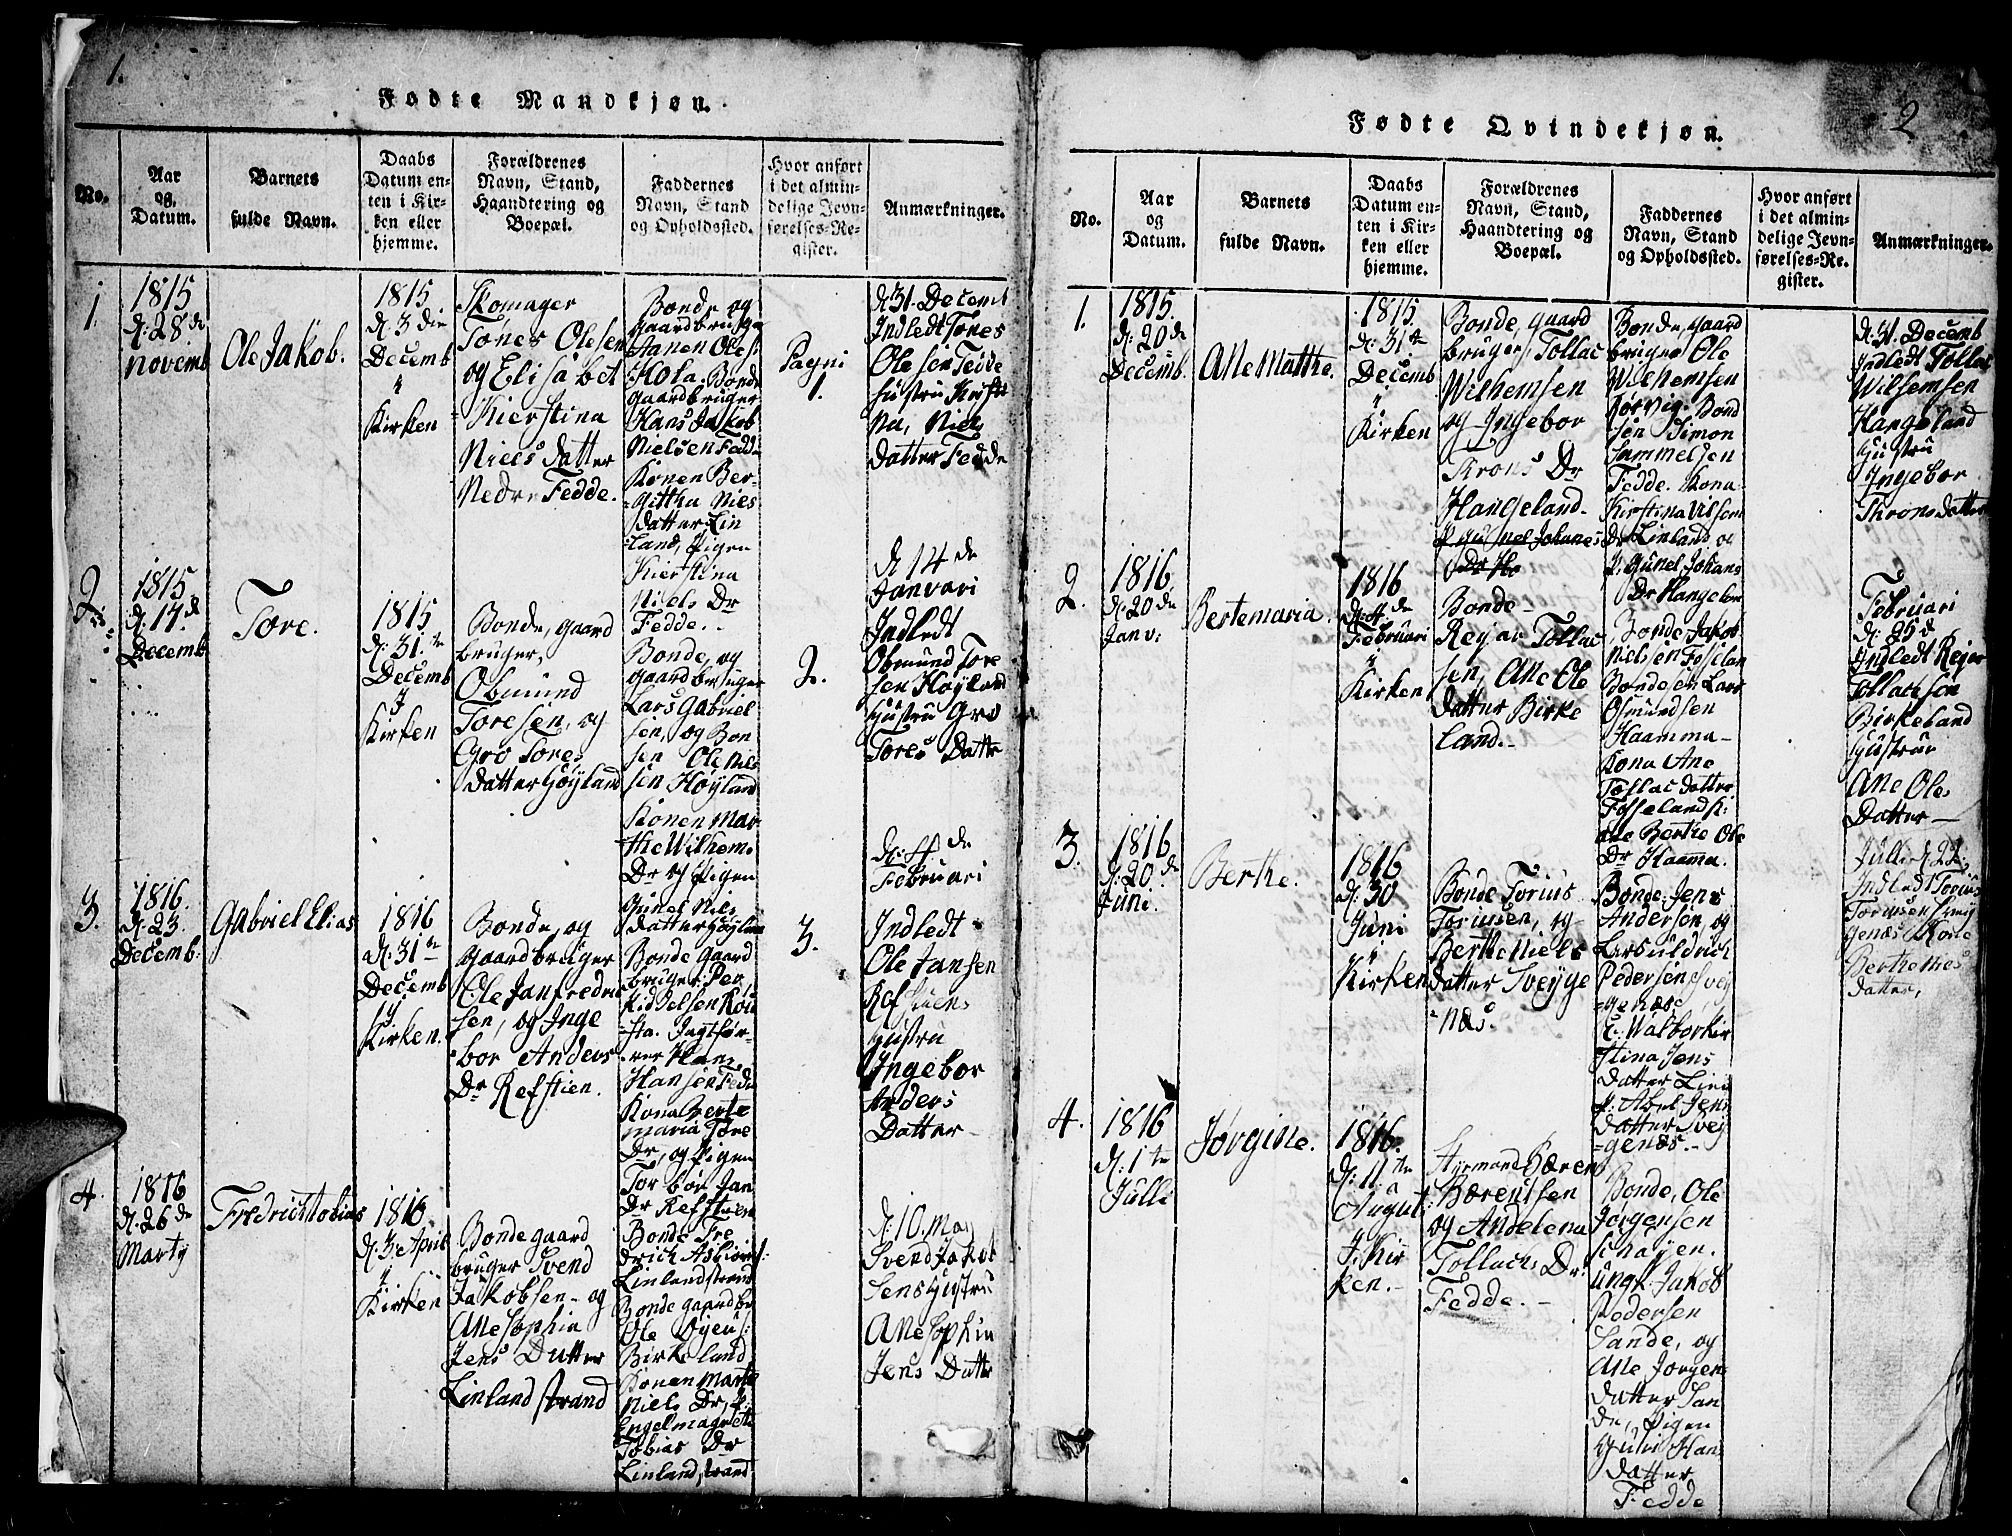 1.
Fødte Mandkjøn.
No.
Aar
og
Datum.
Barnets
fulde Navn.
Daabs
Datum en-
ten i Kir-
ken eller
hjemme.
Forældrenes
Navn, Stand,
Haandtering og
Boepæl.
Faddernes
Navn, Stand
og Opholdssted.
Hvor anført
i det almin-
delige Jevn-
førelses-Re-
gister.
Anmærkninger.
1.
1815
d: 28 de
novemb
Ole Jakob.
1815
d. 3 die
Decemb
i
Kirken
Skomager
Tønes Olesen
og Elisabet
Kierstina
Niels datter
Nedre Fedde.
Bonde og
gaardbruger
Janen Oles:
Hola, Bonde
gaardbruger
Hans Jakob
Nielsen Fedde
Konen Ber-
gitthu Niels
datter Lin
land, Pigen
Kierstina
Niels Dr
Fedde.
Pagni
1.
d. 31. Decemb
Indledt Tønes
Olesen Fedde
hustru Kirsti
na, Niels
datter Fedde
2.
1815.
d. 17. d
Decemb
Tore.
1815
d. 31. te
Decemb
i
Kirken
Bonde, gaard
bruger,
Obmund
Toresen, og
Gro Tores
datter Høyland
Bonde, og
gaardbruger
Lars Gabriel
sen, og Bon
sen Ole Nils
sen Høyland
Konen Mar
the Wilhem.
Dr og Pigen
Gunel Nils
datter Høylan
2.
d 14 de
Januari
Indledt
Obmund Tore
sen Høyland
Hustru Gro
Tores Datter
3.
1816.
d. 23.
Decemb:
Gabriel Elias
1816
d. 31 te
Decemb
i
Kirken.
Bonde, og
gaardbruger
Ole Janfredric
sen, og Inge
bor Anders
Dr Refstien.
Bonde Gaard
bruger Per
Kiddelsen Rou
sta. Jagtfør-
rer Hans
Hansen Fede
Kona Berte
maria Tore
Dr, og Pigen
Torbor Jan
Dr Refstien
3.
d. 4 de
Februari
Indledt
Ole Jansen
Refstien
Hustru
Ingebor
Anders
Datter
4.
1816
d. 26 de
Marty
Fredrich tobias
1816
d. 3. April
i
Kirken
Bonde gaard
bruger Svend
Jakobsen og
Ane Sophia
Jens Datter
Linland strand
Bonde Fre
drich Asbiorns:
Linland strand
Bonde gaardbr
Ole Oyens:
Birkeland
Konen Marte
Niels Dr, P:
Engelmagrete
Tobias Dr
Linland strand
d: 10. May
Svend Jakob
sens hustru
Ane Sophia
Jens Datter
2
Fødte Qvindekjøn.
No.
Aar
og
Datum.
Barnets
fulde Navn.
Daabs
Datum en-
ten i Kir-
ken eller
hjemme.
Forældrenes
Navn, Stand,
Haandtering og
Boepæl.
Faddernes
Navn, Stand
og Opholdssted.
Hvor anført
i det almin-
delige Jevn-
førelses-Re-
gister.
Anmærkninger.
1.
1815.
d. 20 de
Decemb.
Ane Matthe.
1815.
d. 31 te
Decemb
i
Kirken
Bonde, gaard
bruger, Tollac
Wilhemsen
og Ingebor
Trons Dr
Hangeland.
P. Gunel Johanes
Bonde, gaard
bruger Ole
Wilhemsen
Rørvig. Bond
sen Simon
Sammelsen
Fedde. Kona
Kirstina Nilsen
Dr Linland og
P. Gunel Johans
Dr Hangelan
d. 31. Decemb
Indledt Tollac
Wilhemsen
Hangeland
Hustru
Ingebor
Throns datter
2.
1816.
d. 20 de
Janv:
Bertemaria.
1816
d. 4 de
Februari
i
Kirken
Bonde
Rejar Tollac
sen, Ane Ole
datter Birke
land.
Bonde Jakob
Nielsen Foselan
Bondesen Lars
Osmundsen
Haamma
Kona Ane
Tollac datter
Fosseland P:
Ole Berthe Ole
Dr Haamma.
Februari
d. 25 d
Indledt Rejer
Tollacsen
Birkeland
Hustrur
Ane Ole
Datter
3.
1816
d. 20 de
Juni.
Berthe.
1816
d. 30
Juni
i
Kirken
Bonde Torius
Toriusen, og
Berthe Niels
datter Sveyge
næs.
Bonde Jens
Andersen og
Lars uldrich
Pedersen Svey
genæs
K: Walborkir
stina Jens
datter Lini
P. Abel Jens
datter Svey
genæs.
Julli d. 22.
Indledt Torius
Toriussen Sveig
genæs Kone
Berthe Niels
datter,
4.
1816
d. 1 te
Julli
Jørgine.
1816.
d. 11. te
August
I Kir
ken.
Styrmand Bæren
Bærentsen
og Andelena
Tollachs Dr.
Fedde.
Bonde, Ole
Jørgensen
schøyen.
ungk. Jakob
Pedersen
Sande, og
Ane Jørgen
datter San
de, Pigen
Guri Han
datter
Fedde